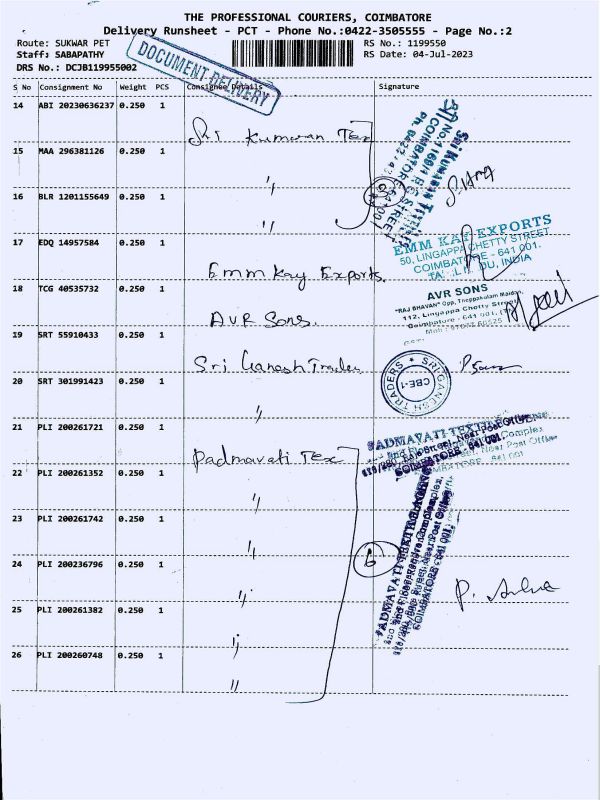 THE PROFESSIONAL COURIERS, COIMBATORE
Delivery Runsheet - PCT - Phone No.:0422-3505555 - Page No.:2
Route: SUKWAR PET
RS No.: 1199550
Staff: SABAPATHY
RS Date: 04-Jul-2023
DRS No.: DCJB119955002
DOCUMENT DELIVERY
S No Consignment No Weight PCS Consignee Details Signature
14 ABI 20230636237 0.250 1 Sri Kumaran Tex
15 MAA 296381126 0.250 1 "
16 BLR 1201155649 0.250 1 "
3
17 EDQ 14957584 0.250 1 Emm Kay Exports.
EMM KAY EXPORTS
50, LINGAPPA CHETTY STREET
COIMBATORE - 641 001.
18 TCG 40535732 0.250 1 AVR Sons.
AVR SONS
"RAJ BHAVAN" Opp. Theppakulam Maidan,
112, Lingappa Chetty Street
Coimbatore - 641 001.
19 SRT 55910433 0.250 1 Sri Ganesh Trades
SRI GANESH TRADERS
CBE-1
20 SRT 301991423 0.250 1 "
21 PLI 200261721 0.250 1 Padmavati Tex
22 PLI 200261352 0.250 1 "
23 PLI 200261742 0.250 1 "
24 PLI 200236796 0.250 1 "
6
25 PLI 200261382 0.250 1 "
26 PLI 200260748 0.250 1 "